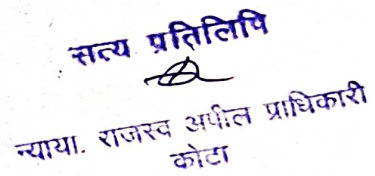 सत्य प्रतिलिपि
न्याया. राजस्व अपील प्राधिकारी
कोटा